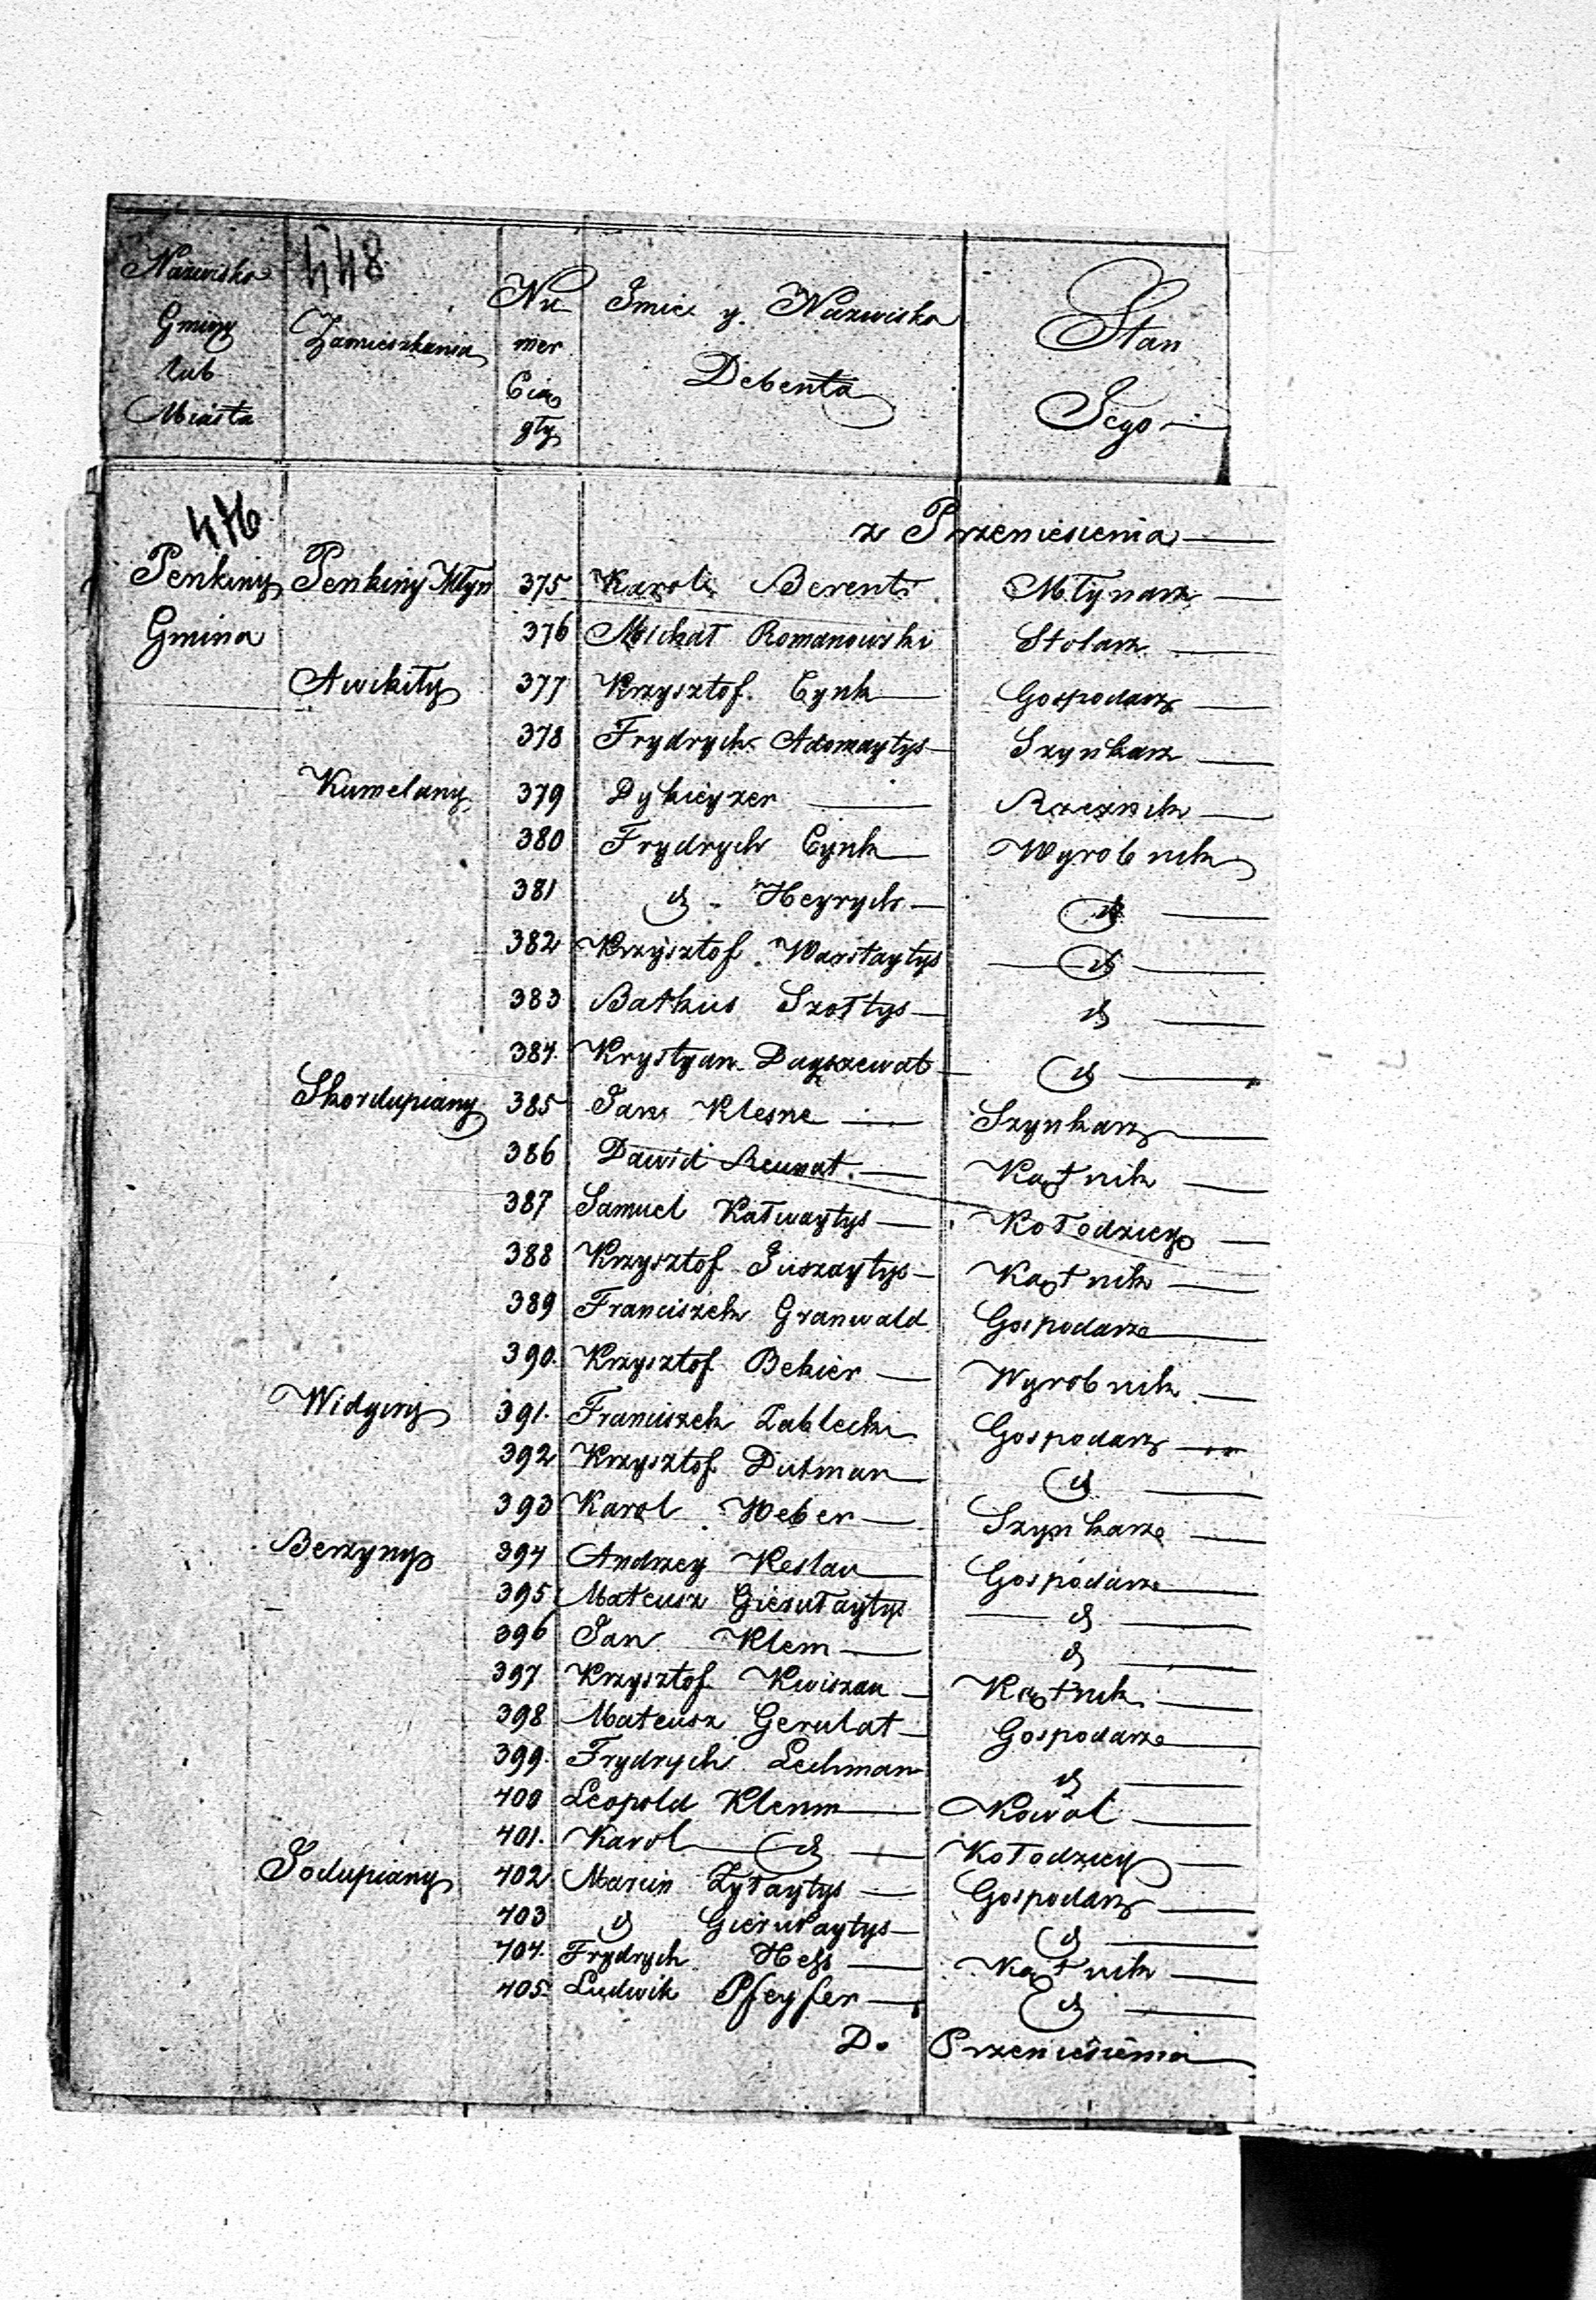 448
Nazwisko Gminy lub Miasta
Zamieszkania
Nu mer Cią gły
Jmie y Nazwisko Debenta
Stan Jego
476
z Przeniesienia
Penkiny Penkiny Młyn 375 Karol Berent Młynarz
Gmina 376 Michał Romanowski Stolarz
Awikity 377 Krzysztof Cynk Gospodarz
378 Frydrych Adomaytys Szynkarz
Kumelany 379 Dykieyzer Rzeznik
380 Frydrych Cynk Wyrobnik
381 d Heyrych d
382 Krzysztof Warstaytys d
383 Batkus Szołtys d
384 Krystyan Dayszewat d
Skordupiany 385 Jan Klesne Szynkarz
386 Dawid Reunat Kątnik
387 Samuel Katwaytys Kołodziey
388 Krzysztof Juszaytys Kątnik
389 Franciszek Granwald Gospodarz
390 Krzysztof Bekier Wyrobnik
Widgiry 391 Franciszek Zablecki Gospodarz
392 Krzysztof Dutman d
393 Karol Weber Szynkarz
Berzyny 394 Andrzey Keslau Gospodarz
395 Mateusz Gierułaytys d
396 Jan Klem d
397 Krzysztof Kwiszau Kątnik
398 Mateusz Gerulat Gospodarz
399 Frydrych Lechman d
400 Leopold Klemm Kowal
401 Karol d Kołodziey
Jodupiany 402 Marcin Zyłaytys Gospodarz
403 d Gierułaytys d
404 Frydrych Hess Kątnik
405 Ludwik Pfeyfer d
Do Przeniesienia